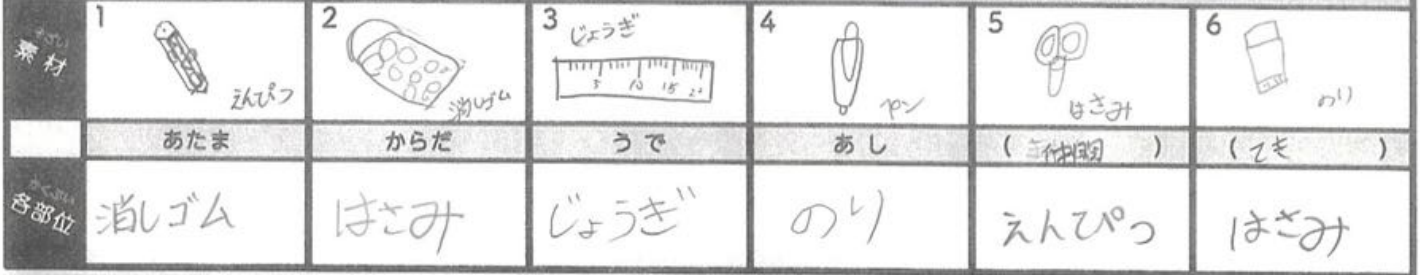 そざい
素材
1
えんぴつ
2
消しゴム
3
じょうぎ
5 10 15 20
4
ペン
5
はさみ
6
のり
あたま
からだ
うで
あし
( )
( てき )
かくぶい
各部位
消しゴム
はさみ
じょうぎ
のり
えんぴつ
はさみ